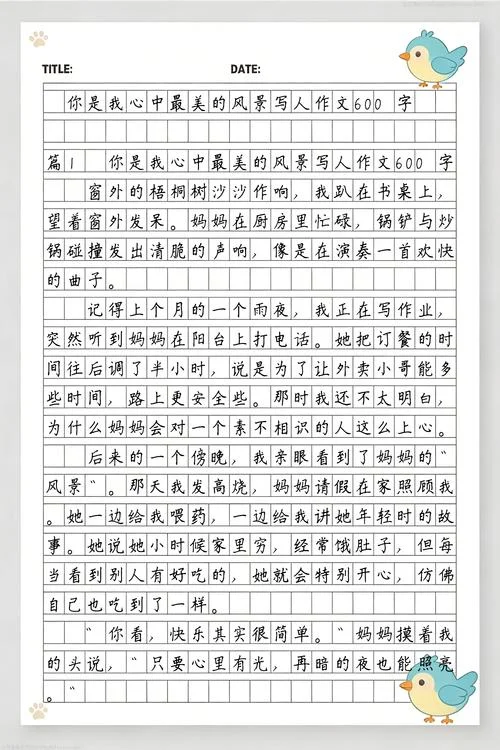 TITLE: DATE:
你是我心中最美的风景写人作文600 字
篇1 你是我心中最美的风景写人作文600 字
窗外的梧桐树沙沙作响，我趴在书桌上，
望着窗外发呆。妈妈在厨房里忙碌，锅铲与炒
锅碰撞发出清脆的声响，像是在演奏一首欢快
的曲子。
记得上个月的一个雨夜，我正在写作业，
突然听到妈妈在阳台上打电话。她把订餐的时
间往后调了半小时，说是为了让外卖小哥能多
些时间，路上更安全些。那时我还不太明白，
为什么妈妈会对一个素不相识的人这么上心。
后来的一个傍晚，我亲眼看到了妈妈的“
风景“。那天我发高烧，妈妈请假在家照顾我
。她一边给我喂药，一边给我讲她年轻时的故
事。她说她小时候家里穷，经常饿肚子，但每
当看到别人有好吃的，她就会特别开心，仿佛
自己也吃到了一样。
“你看，快乐其实很简单。“妈妈摸着我
的头说，“只要心里有光，再暗的夜也能照亮
。“